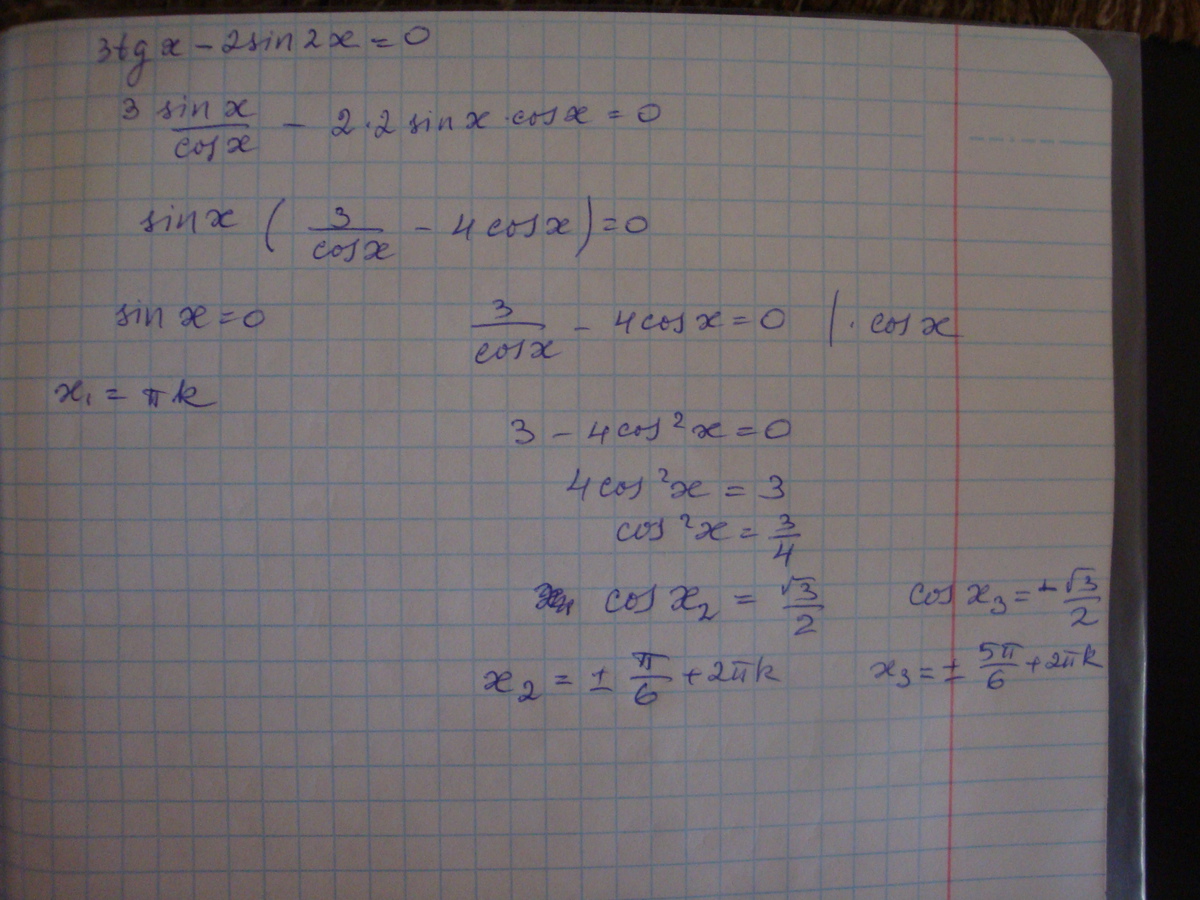 3tg x - 2sin 2x = 0
3 sin x / cos x - 2·2 sin x · cos x = 0
sin x ( 3 / cos x - 4 cos x ) = 0
sin x = 0    3 / cos x - 4cos x = 0 | · cos x
x₁ = πk
3 - 4cos²x = 0
4cos²x = 3
cos²x = 3/4
cos x₂ = √3/2    cos x₃ = -√3/2
x₂ = ± π/6 + 2πk    x₃ = ± 5π/6 + 2πk